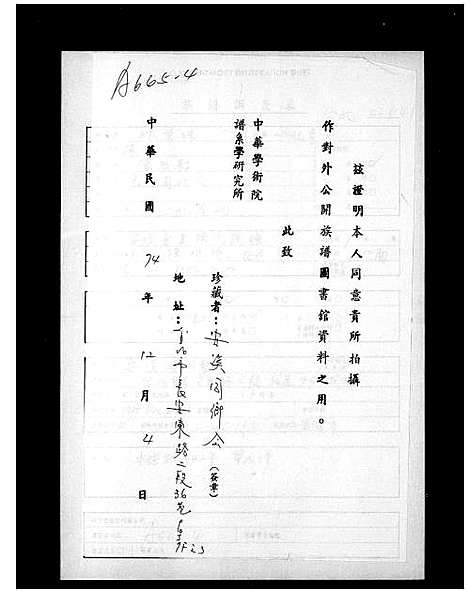 A665-4
茲證明本人同意貴所拍攝
作對外公開族譜圖書館資料之用。
此致
中華學術院
譜系學研究所
珍藏者：安溪同鄉會（簽章）
地址：台北市長安東路二段36巷
中華民國74年12月4日